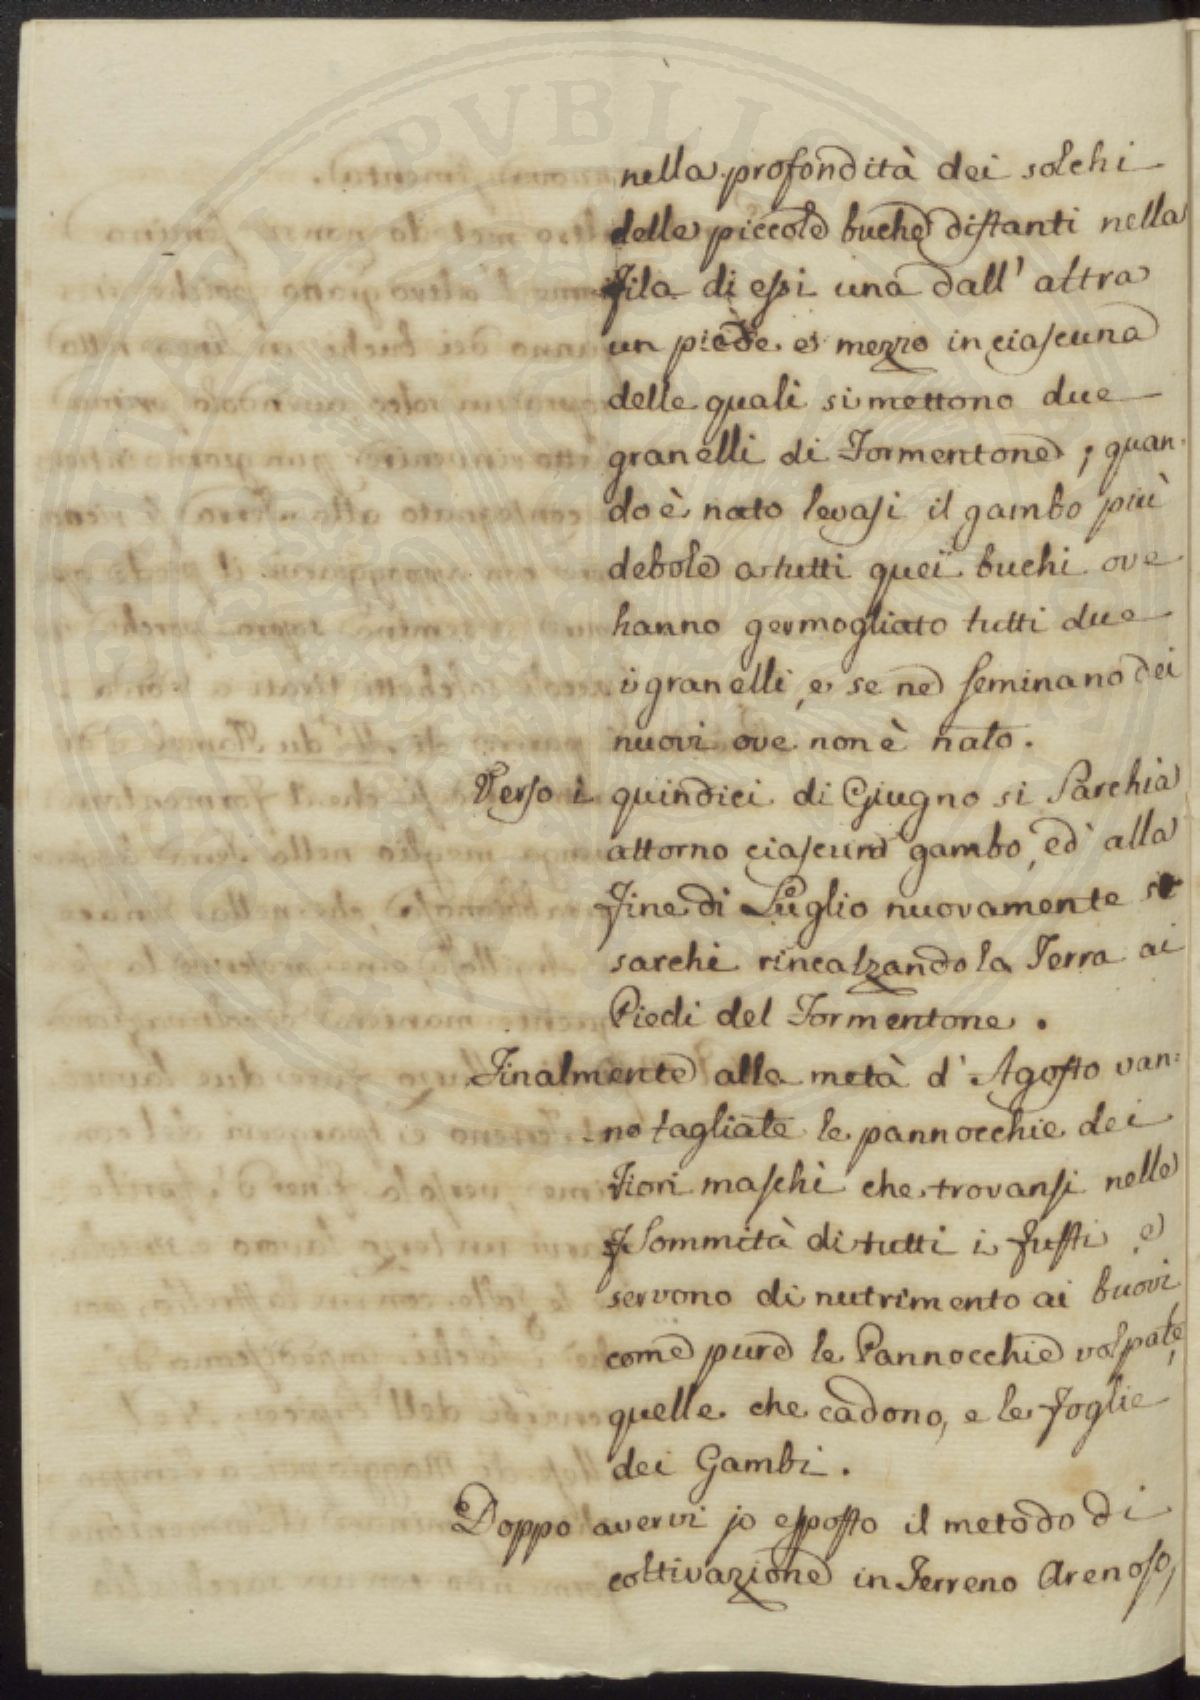 nella profondità dei solchi
delle piccole buche distanti nella
fila di essi una dall' altra
un piede e mezzo in ciascuna
delle quali si mettono due
granelli di Formentone; quan-
do è nato levasi il gambo più
debole a tutti quei buchi ove
hanno germogliato tutti due
i granelli, e se ne seminano dei
nuovi ove non è nato.
Verso i quindici di Giugno si Sarchia
attorno ciascun gambo, ed alla
fine di Luglio nuovamente si
sarchi rincalzando la Terra ai
Piedi del Formentone.
Finalmente alla metà d' Agosto van=
no tagliate le pannocchie dei
fiori maschi che trovansi nelle
Sommità di tutti i fusti, e
servono di nutrimento ai buovi
come pure le Pannocchie volpate,
quelle che cadono, e le foglie
dei Gambi.
Doppo avervi jo esposto il metodo di
coltivazione in Terreno Arenoso,